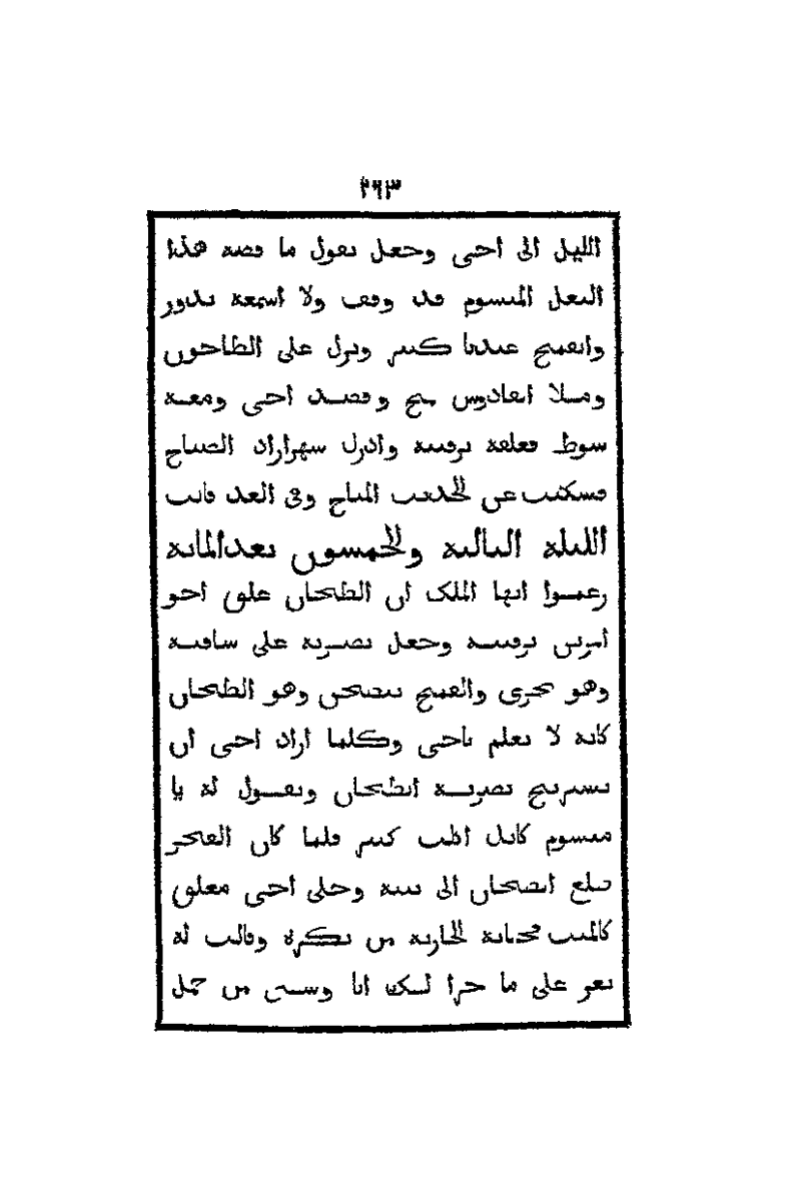 ٢٦٣
الليل الى اخي وجعل يقول ما قصه هذا
البغل الميسوم قد وقف ولا اسمعه يدور
والقمح عندنا كثير ونزل على الطاحون
وملا القادوس قمح وقصد اخي ومعه
سوط فعلقه برقبته وادرك شهرازاد الصباح
فسكتت عن الحديث المباح وفي الغد قالت
الليلة الثالثة والخمسون بعد المائة
زعموا ايها الملك ان الطحان علق اخو
المزين برقبته وجعل يضربه على ساقيه
وهو يجري والقمح ينطحن وهو الطحان
كانه لا يعلم باخي وكلما اراد اخي ان
يستريح يضربه الطحان ويقول له يا
ميسوم كانك اكلت كثير فلما كان الفجر
طلع الطحان الى بيته وخلى اخي معلق
كالميت فجاته الجارية من بكرة وقالت له
يعز على ما جرا لك انا وستي من حمل